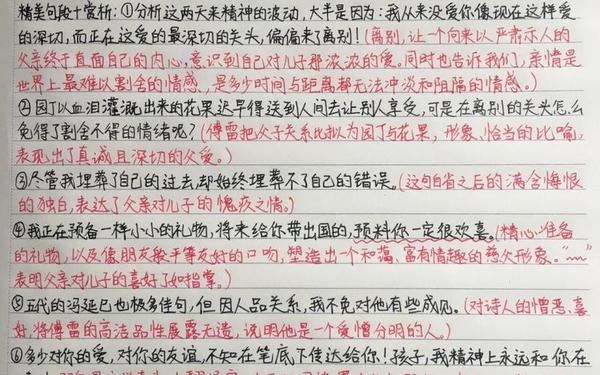 精美句段+赏析:①分析这两天来精神的波动,大半是因为:我从来没爱你像现在这样爱
的深切,而正在这爱的最深切的关头,偏偏来了离别!(离别,让一个向来以严肃示人的
父亲终于直面自己的内心,意识到自己对儿子那浓浓的爱。同时也告诉我们,亲情是
世界上最难以割舍的情感,是多少时间与距离都无法冲淡和阻隔的情感。)
②园丁以血泪灌溉出来的花果迟早得送到人间去让别人享受,可是在离别的关头怎么
免得了割舍不得的情绪呢?(傅雷把父子关系比拟为园丁与花果,形象、恰当的比喻,
表现出了真诚且深切的父爱。)
③尽管我埋葬了自己的过去,却始终埋葬不了自己的错误。(这句自省之后的满含悔恨
的独白,表达了父亲对儿子的愧疚之情。)
④我正在预备一样小小的礼物,将来给你带出国的,预料你一定很欢喜。(精心准备
的礼物,以及像朋友般平等友好的口吻,塑造出一个和蔼、富有情趣的慈父形象。“﹏”
表明父亲对儿子的喜好了如指掌。)
⑤五代的冯延巳也极多佳句,但因人品关系,我不免对他有些成见。(对诗人的憎恶、喜
好,将傅雷的高洁品性展露无遗,说明他是一个爱憎分明的人。)
⑥多少对你的爱,对你的友谊,不知在笔底下传达给你!孩子,我精神上永远和你在